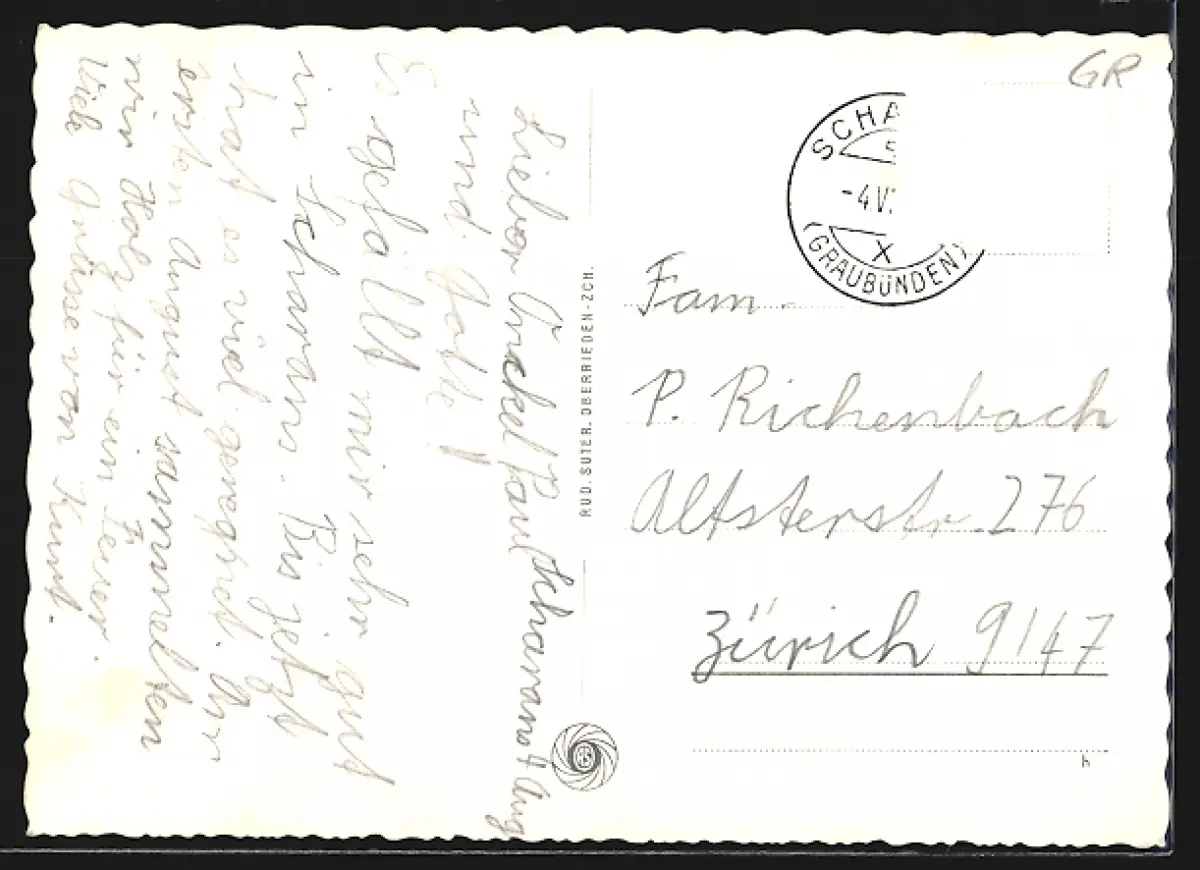 Lieber Onkel Paul Scharans 4 Aug
und Gotte!
Es gefällt mir sehr gut
in Scharans. Bis jetzt
hat es viel geregnet. Am
ersten August sammelten
wir Holz für ein Feuer.
Viele Grüsse von Kurt.
RUD. SUTER, OBERRIEDEN-ZCH.
GR
SCHA
-4.V
X
(GRAUBÜNDEN)
Fam.
P. Richenbach
Altsterstr. 276
Zürich 9/47
h